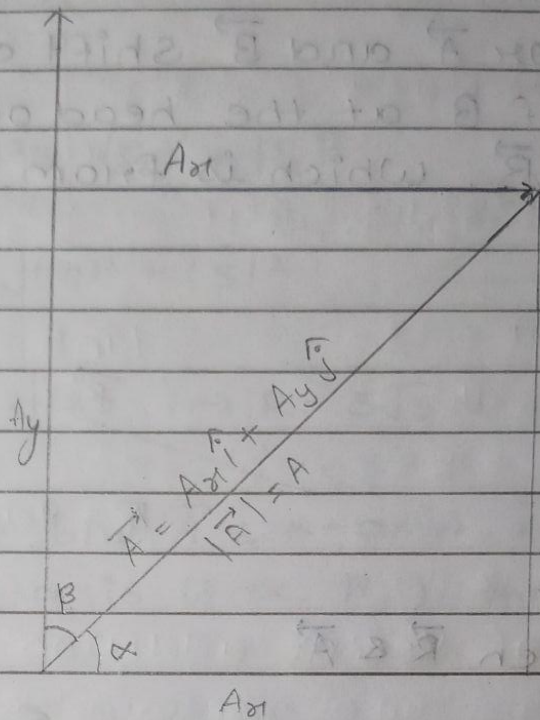 Ax
Ay
A⃗ = Axî + Ayĵ
|A⃗| = A
β
α
Ax